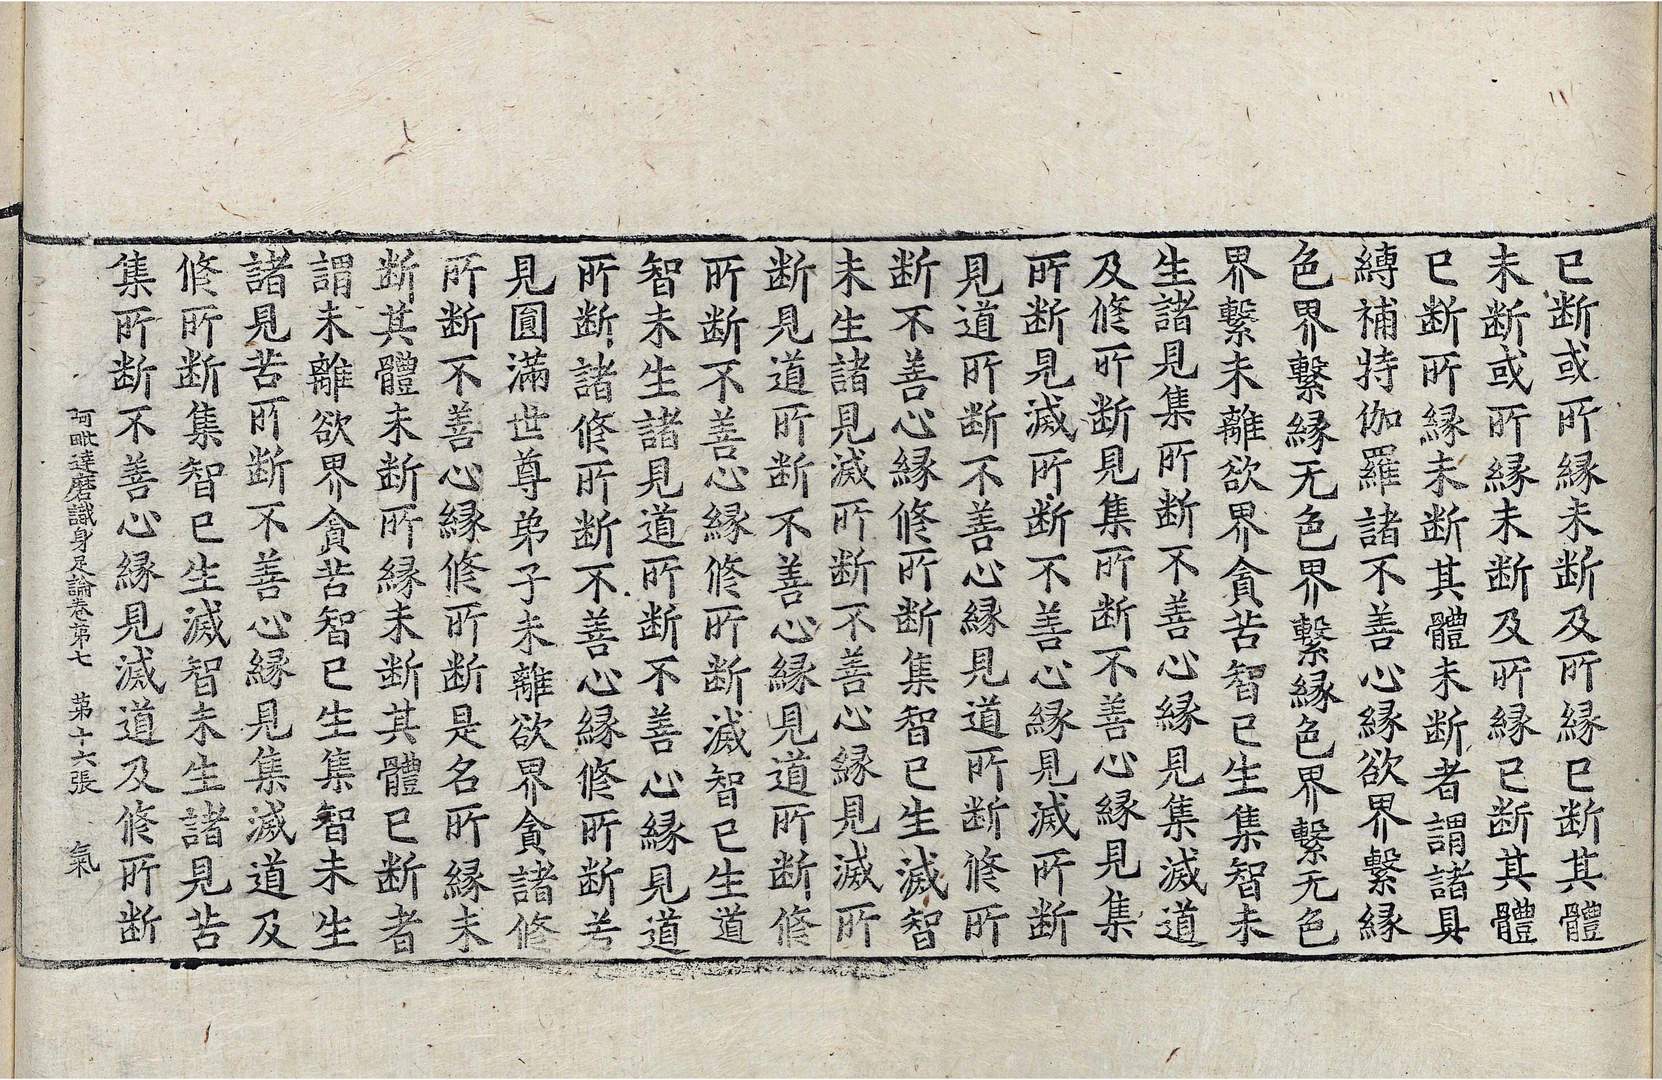 已断或所縁未断及所縁已断其體
未断或所縁未断及所縁已断其體
已断所縁未断其體未断者謂諸具
縛補特伽羅諸不善心縁欲界繫縁
色界繫縁无色界繫縁色界繫无色
界繫未離欲界貪苦智已生集智未
生諸見集所断不善心縁見集滅道
及修所断見集所断不善心縁見集
所断見滅所断不善心縁見滅所断
見道所断不善心縁見道所断修所
断不善心縁修所断集智已生滅智
未生諸見滅所断不善心縁見滅所
断見道所断不善心縁見道所断修
所断不善心縁修所断滅智已生道
智未生諸見道所断不善心縁見道
所断諸修所断不善心縁修所断若
見圓滿世尊弟子未離欲界貪諸修
所断不善心縁修所断是名所縁未
断其體未断所縁未断其體已断者
謂未離欲界貪苦智已生集智未生
諸見苦所断不善心縁見集滅道及
修所断集智已生滅智未生諸見苦
集所断不善心縁見滅道及修所断
阿毗達磨識身足論卷第七 第十六張 氣